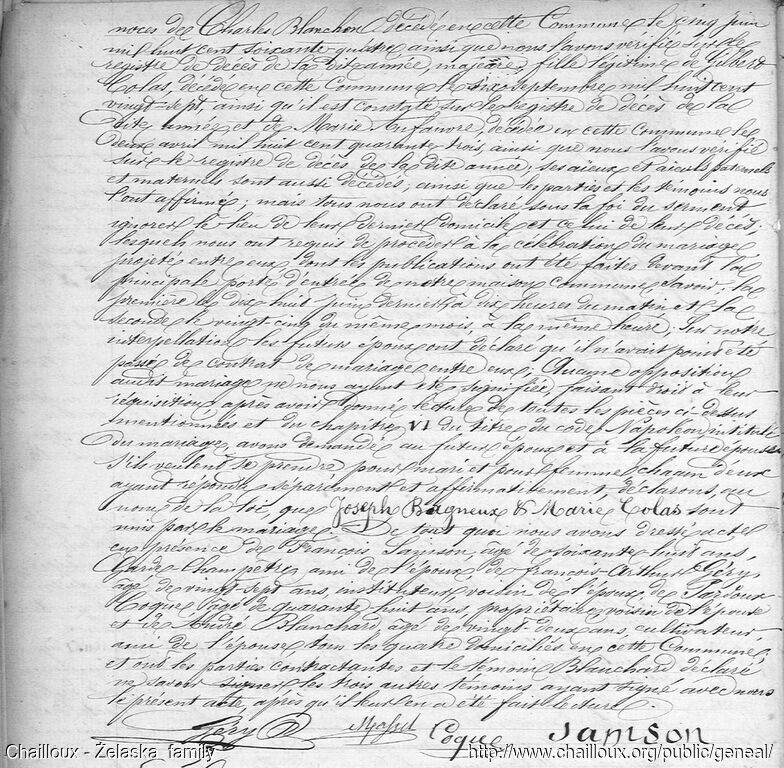 noces de Charles Blanchon décédé en cette Commune le cinq juin
mil huit cent soixante quatre, ainsi que nous l'avons vérifié sur le
registre de décès de la dite année, majeure, fille légitime de Gilbert
Colas, décédé en cette Commune le six septembre mil huit cent
vingt-sept, ainsi qu'il est constaté sur le registre de décès de la
dite année et de Marie Aufauvre, décédée en cette commune le
deux avril mil huit cent quarante trois, ainsi que nous l'avons vérifié
sur le registre de décès de la dite année; ses aïeux et aïeuls paternels
et maternels sont aussi décédés; ainsi que les parties et les témoins nous
l'ont affirmé; mais tous nous ont déclaré sous la foi du serment
ignorer le lieu de leur dernier domicile et celui de leur décès.
lesquels nous ont requis de procéder à la célébration du mariage
projeté entre eux, dont les publications ont été faites devant la
principale porte d'entrée de notre maison commune, savoir: la
première le dix huit juin dernier à dix heures du matin et la
seconde le vingt cinq du même mois, à la même heure. Sur notre
interpellation les futurs époux ont déclaré qu'il n'avait point été
passé de contrat de mariage entre eux; Aucune opposition
audit mariage ne nous ayant été signifiée, faisant droit à leur
réquisition, après avoir donné lecture de toutes les pièces ci-dessus
mentionnées et du chapitre VI du titre du code Napoléon, intitulé
du mariage, avons demandé au futur époux et à la future épouse
s'ils veulent se prendre pour mari et pour femme, chacun d'eux
ayant répondu séparément et affirmativement, déclarons, au
nom de la loi, que Joseph Bagneux & Marie Colas sont
unis par le mariage. De tout quoi nous avons dressé acte
en présence de François Samson, âgé de soixante huit ans,
Garde Champetre, ami de l'époux, de François-Arthur Géry
âgé de vingt sept ans, instituteur, voisin de l'époux, de Pardoux
Coque, âgé de quarante huit ans, propriétaire, voisin de l'épouse
et de André Blanchard, âgé de vingt deux ans, cultivateur
ami de l'épouse, tous les quatre domiciliés en cette Commune,
et ont les parties contractantes et le témoin Blanchard déclaré
ne savoir signer, les trois autres témoins ayant signé avec nous
le présent acte après qu'il leur en a été fait lecture.
Géry Coque Samson
Chailloux - Želaska family http://www.chailloux.org/public/geneal/